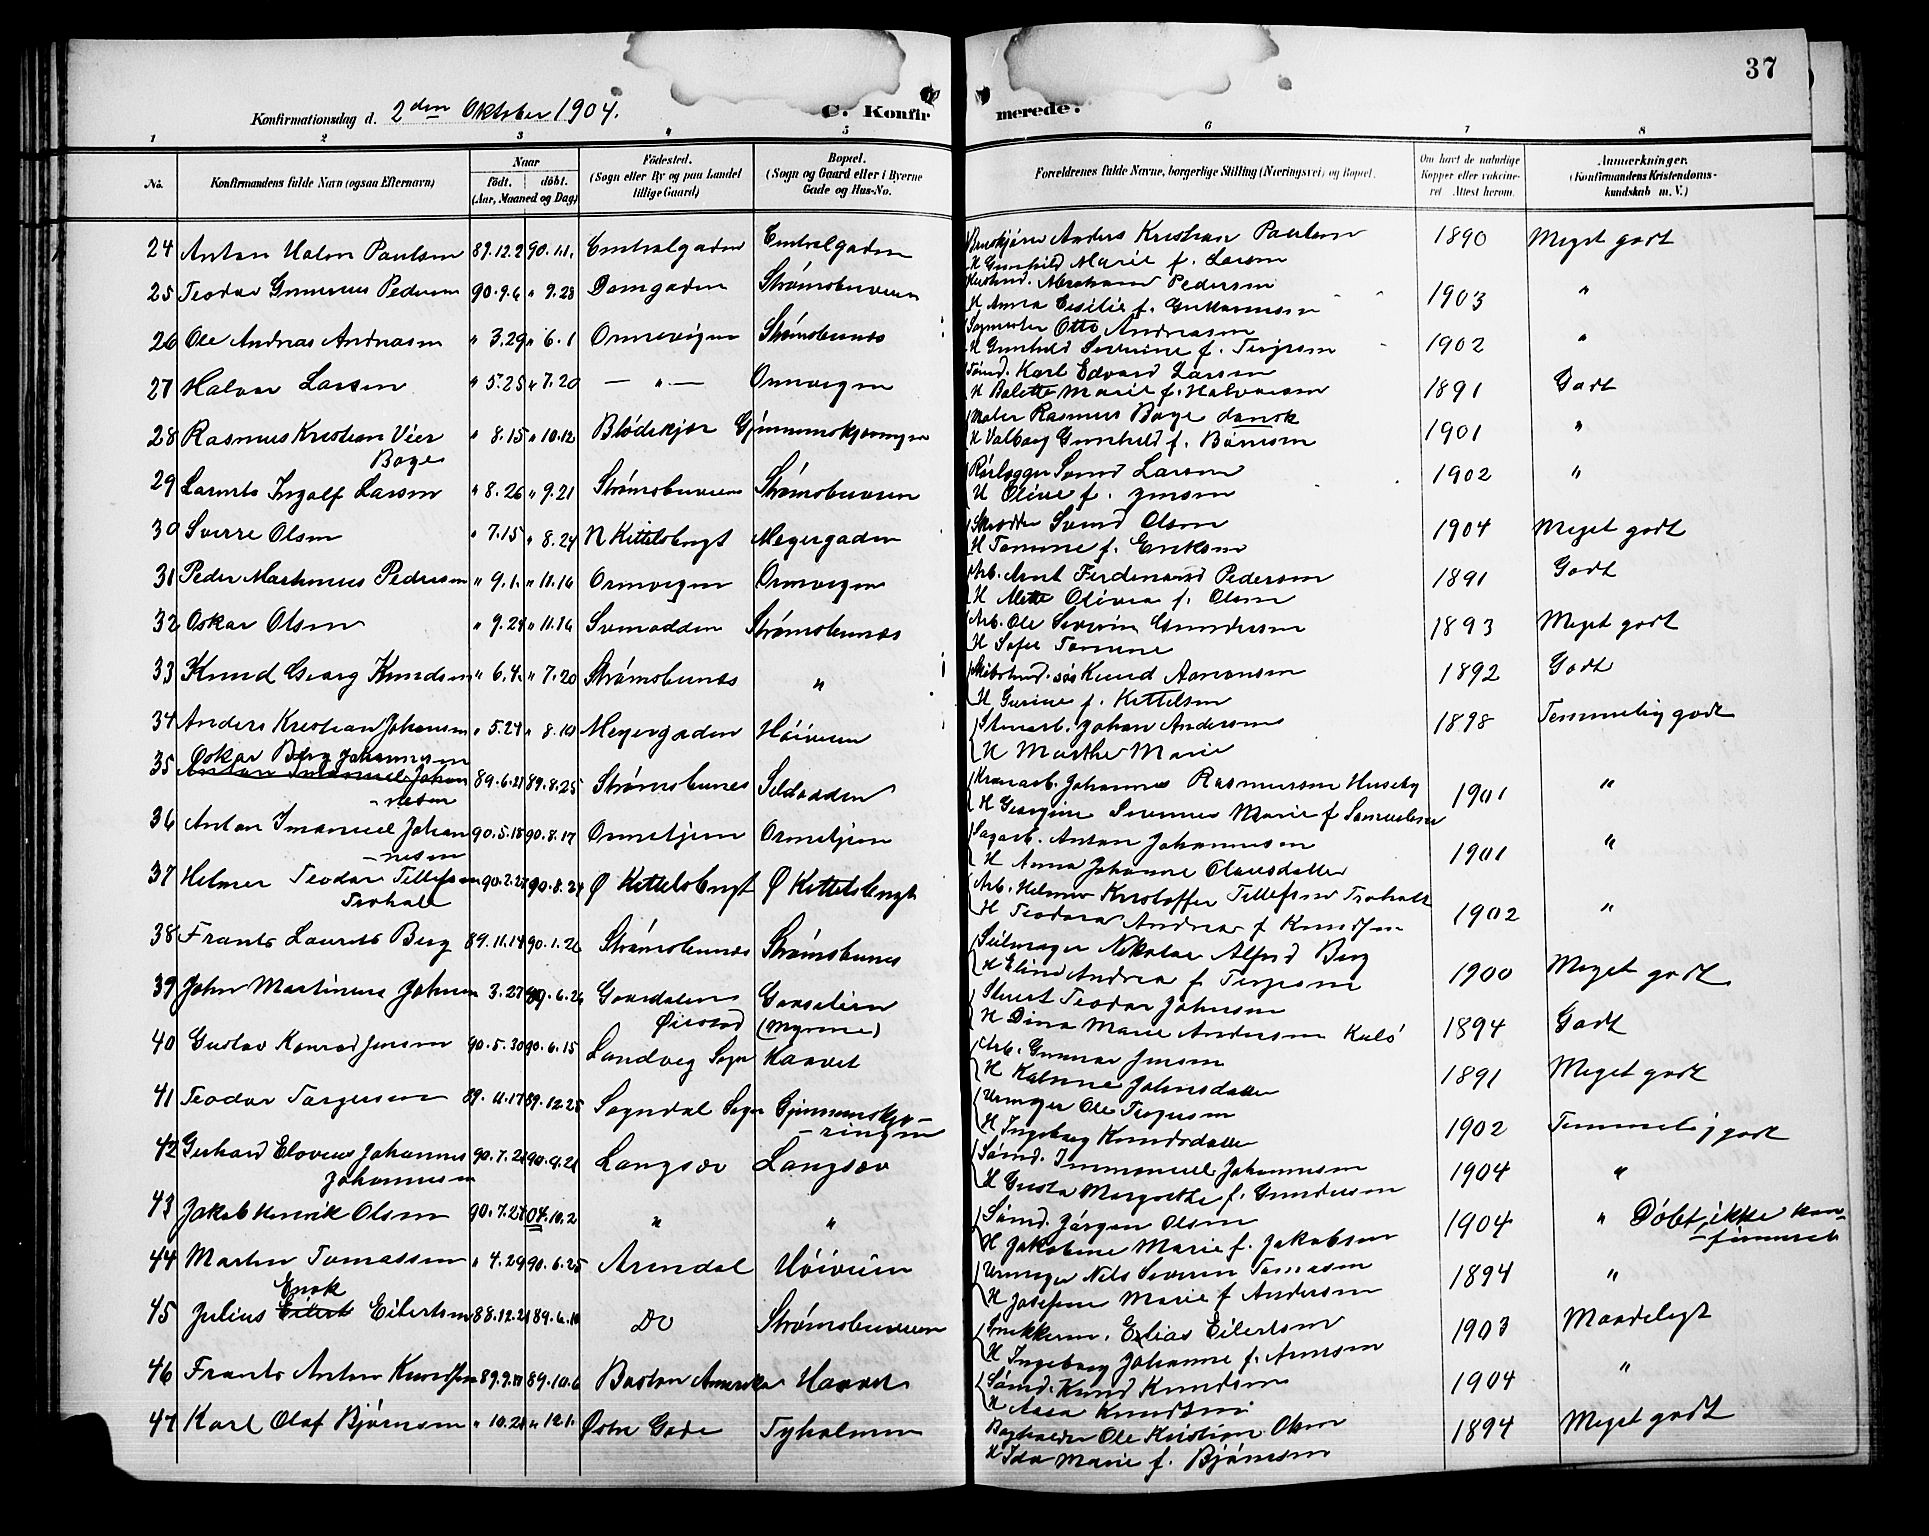 37
Konfirmationsdag d. 2den Oktober 1904.
C. Konfirmerede.
1 2 3 4 5 6 7 8
No.
Konfirmandens fulde Navn (ogsaa Efternavn)
Naar
født. døbt.
(Aar, Maaned og Dag)
Födested.
(Sogn eller By og paa Landet
tillige Gaard.)
Bopæl.
(Sogn og Gaard eller i Byerne
Gade og Hus-No.
Forældrenes fulde Navne, borgerlige Stilling (Næringsvei) og Bopæl.
Om havt de naturlige
Kopper eller vakcine-
ret. Attest herom.
Anmærkninger.
(Konfirmandens Kristendoms-
kundskab m. V.)
24 Anton Halvor Paulsen 89.12.2 90.1.1. Centralgaden Centralgaden Anders Kristian Paulsen 1890 Meget godt
H Gunhild Marie f. Larsen
25 Teodor Gunerius Pedersen 90.9.6 " 9.28 Domgaden Strømsbuveien Abraham Pedersen 1903 "
H Anna Cecilie f. Guttormsen
26 Ole Andreas Andreasen " 3.29 " 6.1 Ormevigen Strømsbunes Sagmester Otto Andreasen 1902 "
H Gunhild Severine f. Terjesen
27 Halvor Larsen " 5.25 " 7.20 — " — Ormvigen Tømd. Karl Edvard Larsen 1891 Godt
H Bolette Marie f. Halvorsen
28 Rasmus Kristian Vier " 8.15 " 10.12 Blødekjær Gjennemskjæringen Maler Rasmus Boye dansk 1901 "
Boye
H Valborg Gunhild f. Børresen
29 Laurits Ingolf Larsen " 8.26 " 9.21 Strømsbuveien Strømsbuveien Rørlægger Svend Larsen 1902 "
H Olive f. Jensen
30 Sverre Olsen " 7.15 " 8.24 N Kittelsbugt Meyergaden Skrædder Svend Olsen 1904 Meget godt
H Tomine f. Eriksen
31 Peder Mathinius Pedersen " 9.1. " 11.16 Ormvigen Ormvigen Arb. Arnt Ferdinand Pedersen 1891 Godt
H Mette Olivia f. Olsen
32 Oskar Olsen " 9.24 " 11.16 Svinodden Strømsbunæs Arb. Ole Severin Gundersen 1893 Meget godt
H Sofie Tomine
33 Knud Georg Knudsen " 6.4. " 7.20 Strømsbunæs " Knud Aanonsen 1892 Godt
H Gurine f. Kittelsen
34 Anders Kristian Johansen " 5.24 " 8.10 Meyergaden Høiveien Stenarb. Johan Andersen 1898 Temmelig godt
H Marthe Marie
Oskar Berg Johannesen
35 Anton Imanuel Johan- 89.6.21 89.8.25 Strømsbunes Sildodden Johannes Rasmussen Huseby 1901 "
-nesen
H Georgine Severine Marie f Samuelsen
36 Anton Imanuel Johan- 90.5.18 90.8.17 Ormetjern Ormetjern Sagarb. Anton Johannesen 1901 "
-nesen
H Anna Johanne Olausdatter
37 Helmer Teodor Tellefsen 90.2.27 90.8.24 Ø Kittelsbugt Ø Kittelsbugt Arb. Helmer Kristoffer Tellefsen Troholt 1902 "
Troholt
H Teodora Andrea f Knudsen
38 Frants Laurits Berg 89.11.14 90.1.26 Strømsbunæs Strømsbunes Seilmager Nikolai Alfred Berg 1900 Meget godt
H Eline Andrea f. Terjesen
39 John Martinius Johnsen " 3.27 89.6.26 Goosdalen Gaaselien Stuert Teodor Johnsen 1894 Godt
Øiestad (Myrene)
H Dina Marie Andersen Kulø
40 Gustav Konrad Jensen 90.5.30 90.6.15 Landvig Sogn Haavet Arb. Gunnar Jensen 1891 Meget godt
H Katrine Johnsdatter
41 Teodor Torgersen 89.11.17 89.12.25 Sogndal Sogn Gjennemskjæ- Urmager Ole Torgersen 1902 Temmelig godt
-ringen
H Ingeborg Knudsdatter
42 Gerhard Elovius Johannes 90.7.21 90.9.21 Langsæv Langsæv Sømd. Immanuel Johannesen 1904 "
Johannesen
H Gusta Margrethe f. Gundersen
43 Jakob Henrik Olsen 90.7.27 04.10.2 " " Sømd. Jørgen Olsen 1904 " Døbt, ikke kon-
-firmeret
H Jakobine Marie f. Jakobsen
44 Martin Tomassen " 4.29 90.6.25 Arendal Høiveien Urmager Nils Severin Tomasen 1894 "
H Josefine Marie f Andersen
Enok
45 Julius Eilert Eilertsen 88.12.21 89.6.10 Do Strømsbuveien Snekkerm. Elias Eilertsen 1903 Maadeligt
H Ingeborg Johanne f. Arnesen
46 Frants Anton Knudsen 89.9.11 89.10.6 Boston Amerika Haavet Sømd. Knud Knudsen 1904 "
H Aasa Knudsen
47 Karl Olaf Bjørnsen " 10.21 " 12.1. Østre Gade Tyholmen Bogholder Ole Kristian Olsen 1894 Meget godt
H Ida Marie f. Bjørnsen